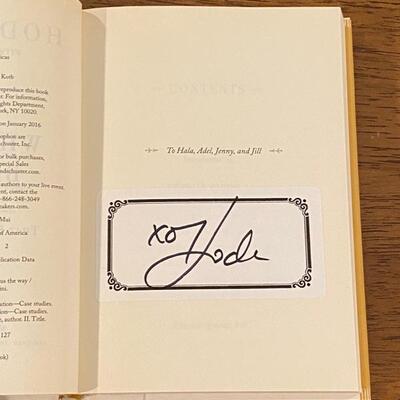 HOD
Kotb
reproduce this book
For information,
ghts Department,
rk, NY 10020.
on January 2016
ophon are
chuster, Inc.
or bulk purchases,
pecial Sales
ndschuster.com
authors to your live event.
ntact the
-866-248-3049
eakers.com
Mui
of America
2
blication Data
us the way /
ution—Case studies.
ation—Case studies.
ature, author. II. Title.
127
ook)
CONTENTS
To Hala, Adel, Jenny, and Jill
xo Hoda